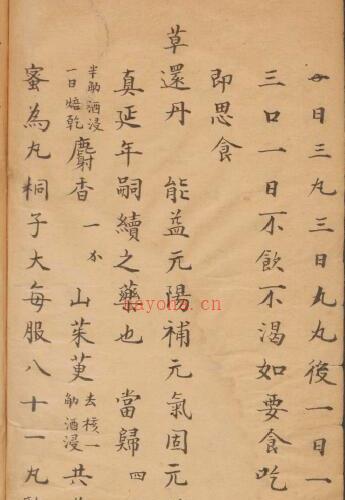 每日三丸三日九丸後一日一
三口一日不飲不渴如要食吃
即思食
草還丹 能益元陽補元氣固元
真延年嗣續之藥也 當歸 四
半觔酒浸
一日焙乾
麝香 一 山茱萸 去核一
觔酒浸 共
蜜為丸桐子大每服八十一丸
nayona.cn